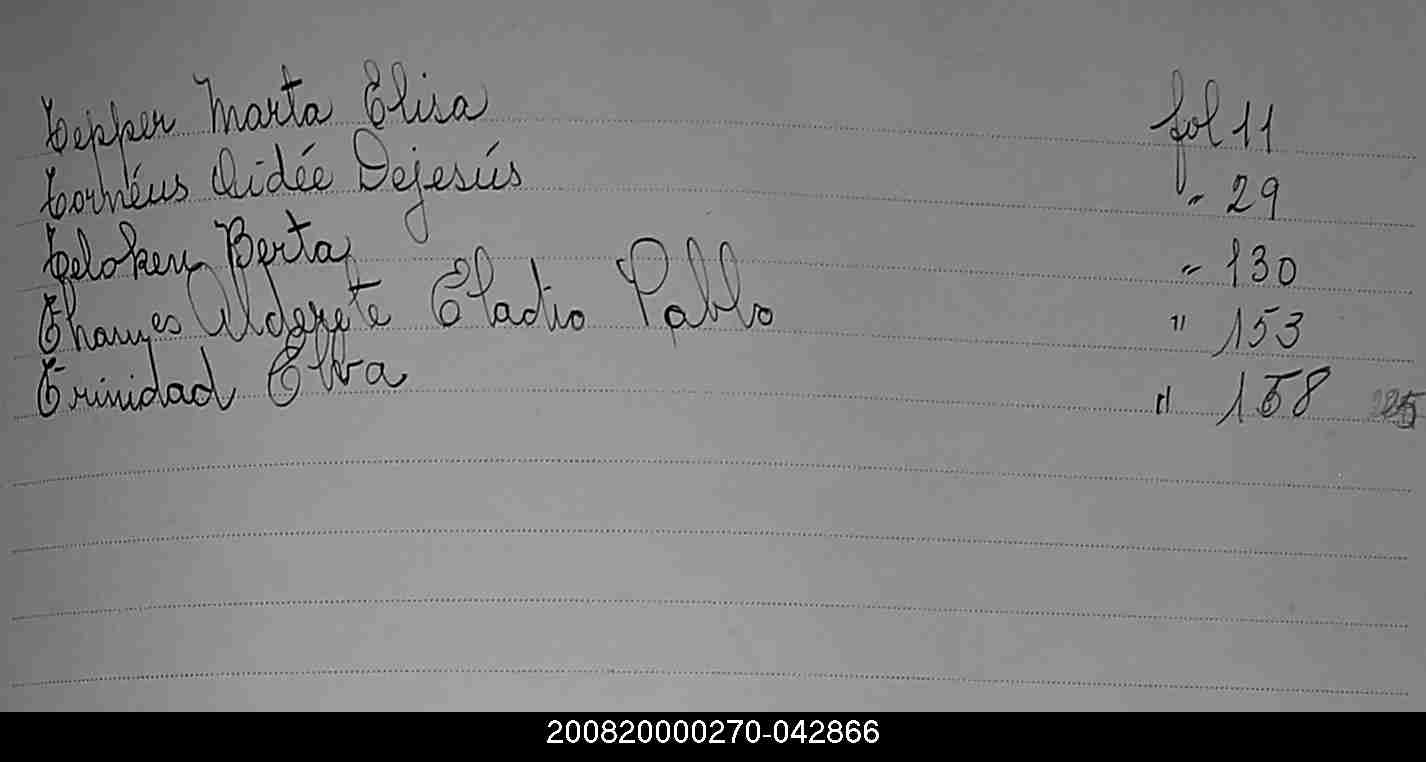 Tepper Marta Elisa fol 11
Tornéus Aidée Dejesús " 29
Teloken Berta " 130
Thames Alderete Eladio Pablo " 153
Trinidad Elva " 158
200820000270-042866